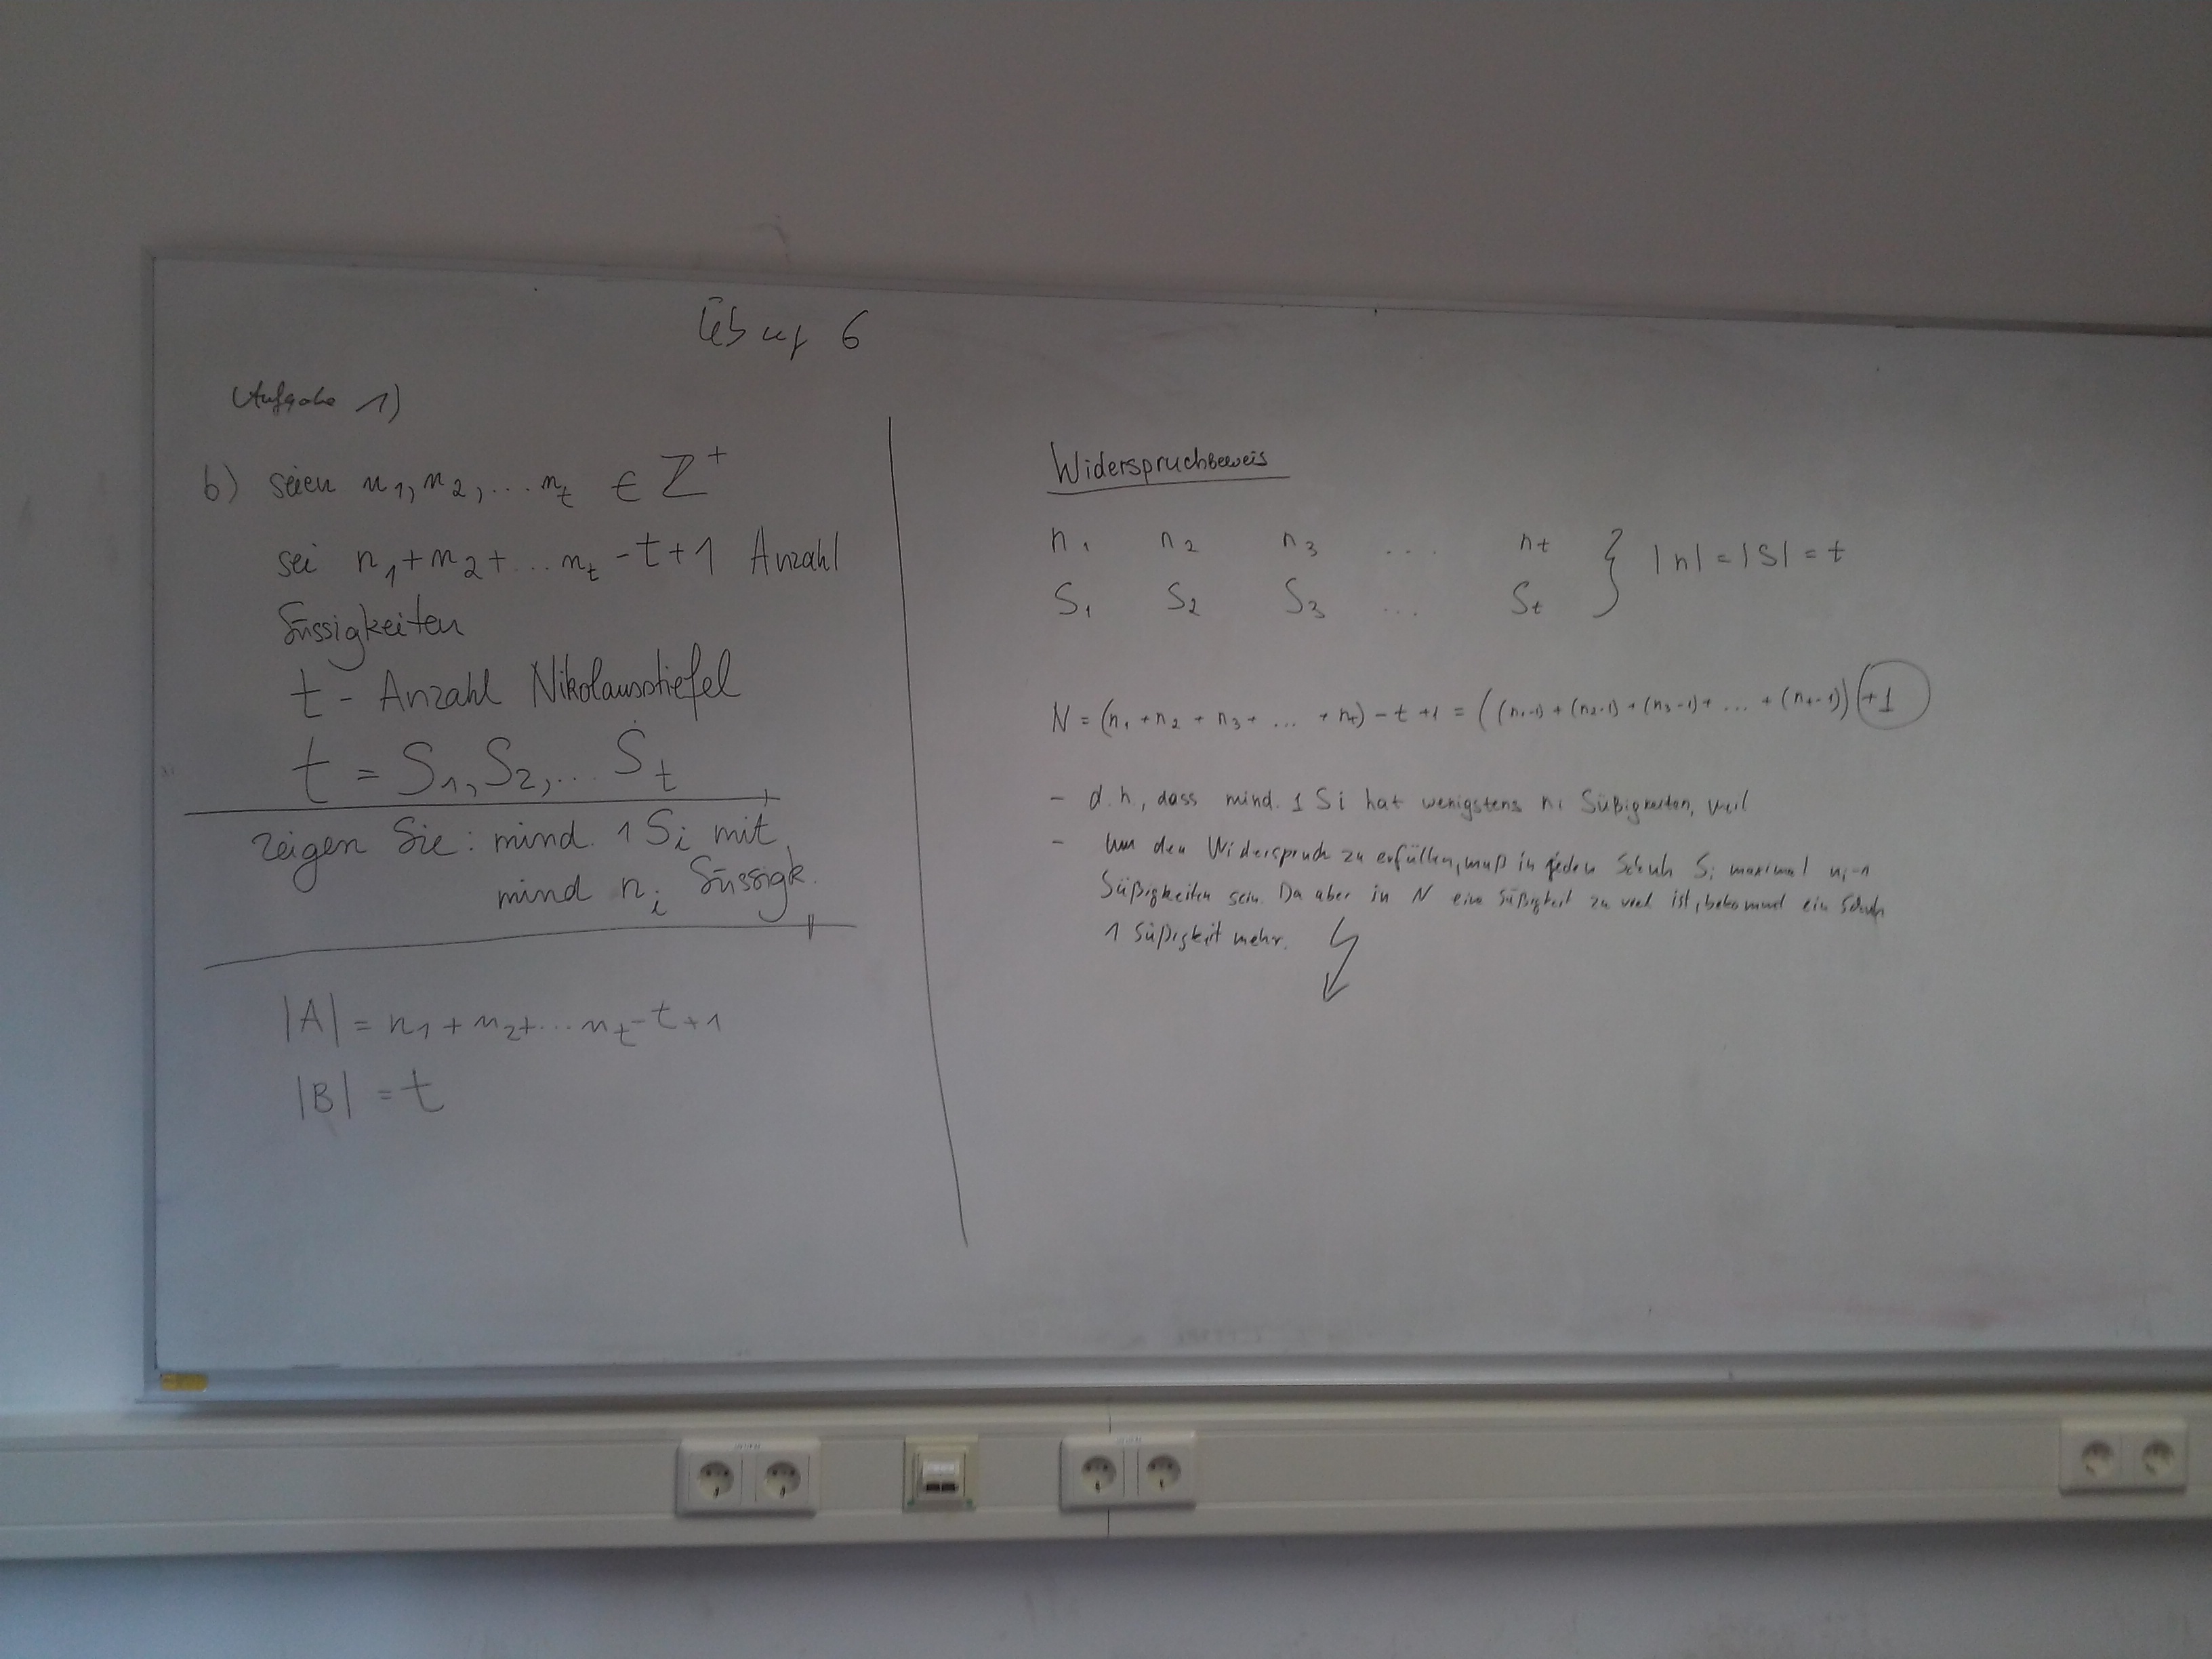 Übung 6
Aufgabe 1)
b) seien n₁, n₂, ... n_t ∈ Z⁺
sei n₁ + n₂ + ... n_t - t + 1 Anzahl
Süssigkeiten
t - Anzahl Nikolausstiefel
t = S₁, S₂, ... S_t
zeigen Sie: mind. 1 S_i mit
mind n_i Süssigk.
|A| = n₁ + n₂ + ... n_t - t + 1
|B| = t
Widerspruchbeweis
n₁ n₂ n₃ ... n_t } |n| = |S| = t
S₁ S₂ S₃ ... S_t
N = (n₁ + n₂ + n₃ + ... + n_t) - t + 1 = ((n₁-1) + (n₂-1) + (n₃-1) + ... + (n_t-1)) +1
- d.h., dass mind. 1 Si hat wenigstens ni Süßigkeiten, weil
- Um den Widerspruch zu erfüllen, muß in jedem Schuh Si maximal ni-1
Süßigkeiten sein. Da aber in N eine Süßigkeit zu viel ist, bekommt ein Schuh
1 Süßigkeit mehr.